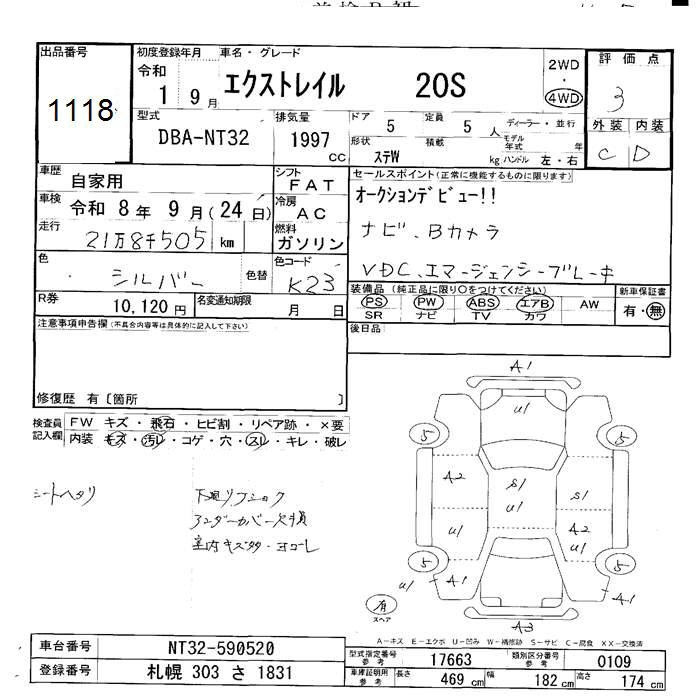 出品番号
1118
初度登録年月
令和
1 9月
車名・グレード
エクストレイル 20S
2WD
・
4WD
評価点
3
外装 内装
C D
型式
DBA-NT32
排気量
1997
CC
ドア 5
定員 5 人
形状 ステW
積載 kg
ディーラー・並行
モデル年式 年
ハンドル 左・右
車歴 自家用
シフト FAT
車検 令和 8年 9月(24日)
冷房 AC
走行 21万8千505 km
燃料 ガソリン
セールスポイント(正常に機能するものに限ります)
オークションデビュー!!
ナビ、Bカメラ
VDC、エマージェンシーブレーキ
色 シルバー 色替
色コード K23
R券 10,120円
名変通知期限 月 日
装備品(純正品に限り○をつけてください)
PS PW ABS エアB AW
SR ナビ TV カワ
新車保証書
有・無
後日品
注意事項申告欄(不具合内容等は具体的に記入して下さい)
修復歴 有〔箇所 〕
検査員記入欄
FW キズ・飛石・ヒビ割・リペア跡・×要
内装 キズ・汚レ・コゲ・穴・スレ・キレ・破レ
シートヘタリ
下廻リフショク
アンダーカバー欠損
室内キズ多・ヨゴレ
A1
U1
5 5
A2 S1 S1
U1 U1 A2
U1
5 5
U1 A1 A1
有
スペア
A3
A-キズ E-エクボ U-凹み W-補修跡 S-サビ C-腐食 XX-交換済
車台番号 NT32-590520
登録番号 札幌 303 さ 1831
型式指定番号 参考 17663
類別区分番号 参考 0109
車庫証明用 参考 長さ 469cm 幅 182cm 高さ 174cm